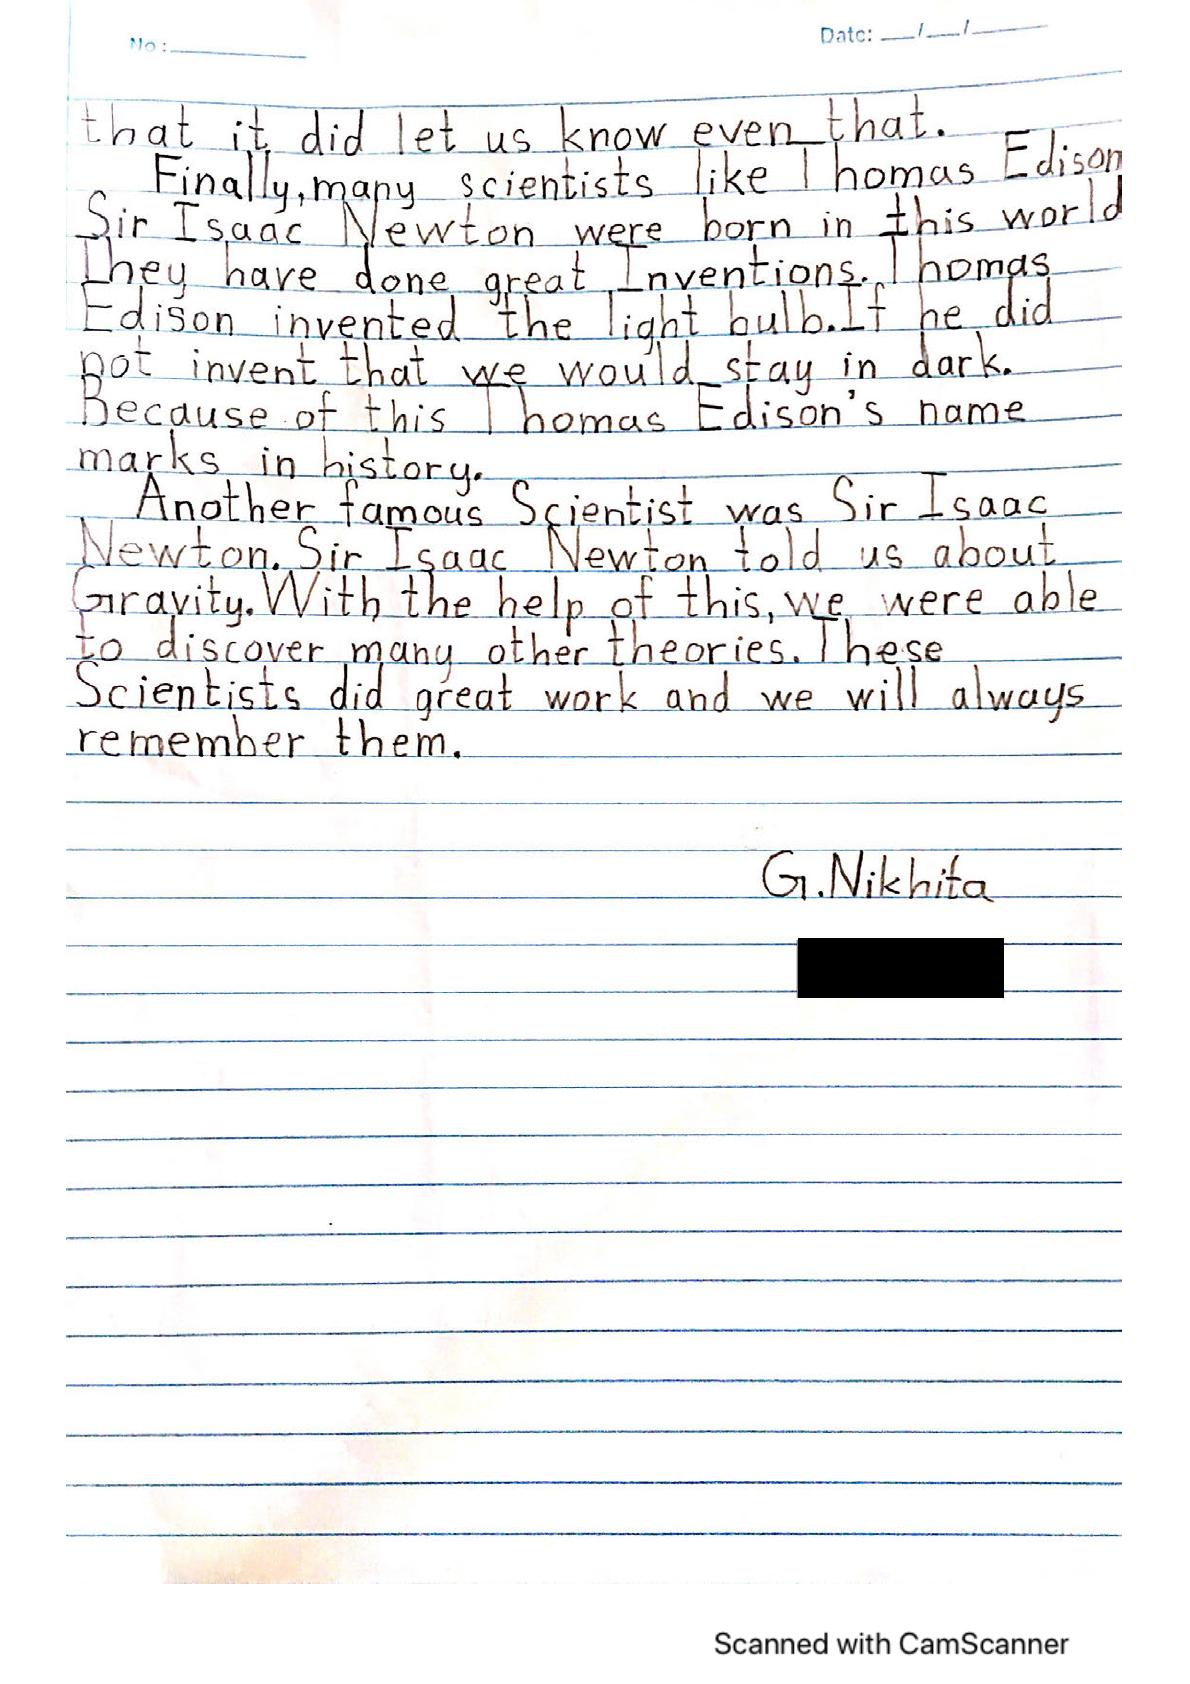 No: Date: __/__/____
that it did let us know even that.
Finally, many scientists like Thomas Edison
Sir Isaac Newton were born in this world
They have done great Inventions. Thomas
Edison invented the light bulb. If he did
not invent that we would stay in dark.
Because of this Thomas Edison's name
marks in history.
Another famous Scientist was Sir Isaac
Newton. Sir Isaac Newton told us about
Gravity. With the help of this, we were able
to discover many other theories. These
Scientists did great work and we will always
remember them.
G. Nikhita
Scanned with CamScanner